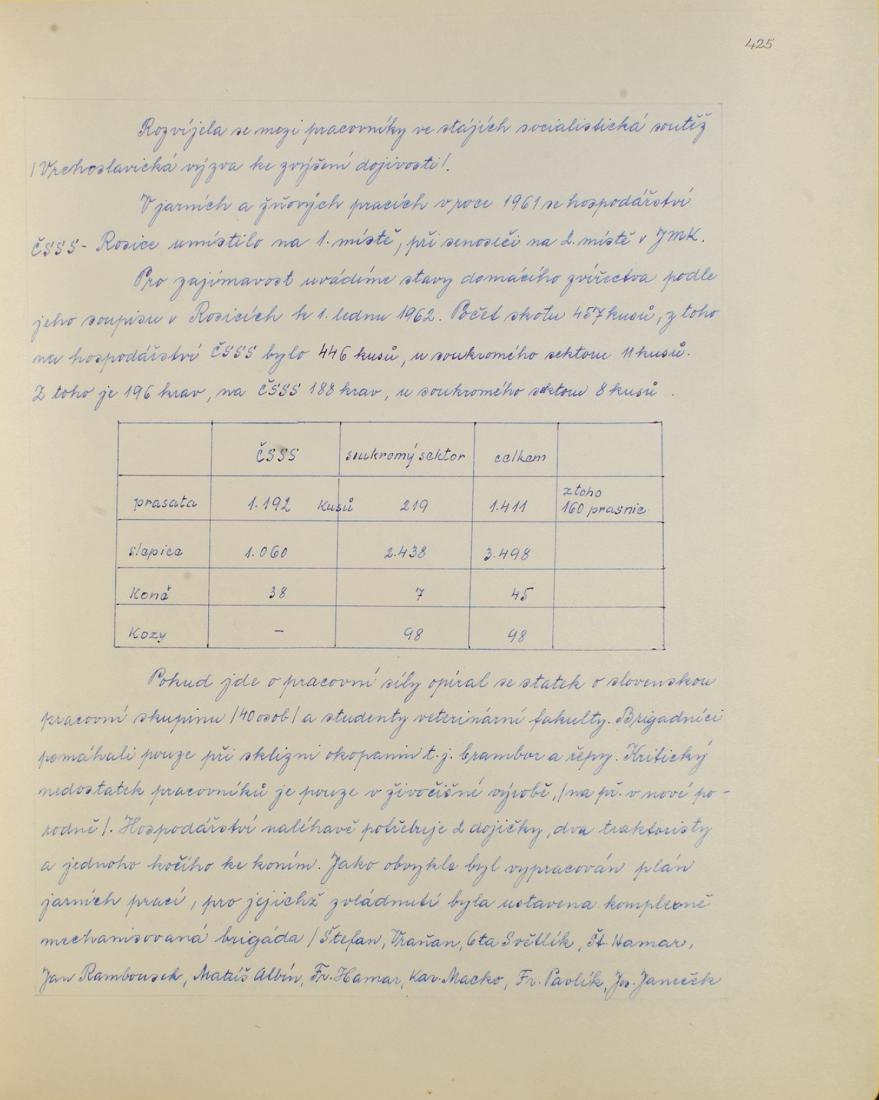 425
Rozvíjela se mezi pracovníky ve stájích socialistická soutěž
/Vrchoslavická výzva ke zvýšení dojivosti/.
V jarních a žňových pracích v roce 1961 se hospodářství
ČSSS - Rosice umístilo na 1. místě, při senoseči na 2. místě v JMK.
Pro zajímavost uvádíme stavy domácího zvířectva podle
jeho soupisu v Rosicích k 1. lednu 1962. Počet skotu 457 kusů, z toho
na hospodářství ČSSS bylo 446 kusů, u soukromého sektoru 11 kusů.
Z toho je 196 krav, na ČSSS 188 krav, u soukromého sektoru 8 kusů.
ČSSS soukromý sektor celkem
prasata 1.192 kusů 219 1.411 z toho
160 prasnic
slepice 1.060 2.438 3.498
Koně 38 7 45
Kozy - 98 98
Pokud jde o pracovní síly opíral se statek o slovenskou
pracovní skupinu /40 osob/ a studenty veterinární fakulty. Brigádníci
pomáhali pouze při sklizni okopanin t.j. brambor a řepy. Kritický
nedostatek pracovníků je pouze v živočišné výrobě, /na př. v nové po-
rodně/. Hospodářství naléhavě potřebuje 2 dojičky, dva traktoristy
a jednoho kočího ke koním. Jako obvykle byl vypracován plán
jarních prací, pro jejichž zvládnutí byla ustavena komplexně
mechanisovaná brigáda /Štefan, Vraňan, Ota Světlík, Št. Hamar,
Jan Rambousek, Matúš Albín, Fr. Hamar, Kar. Macko, Fr. Pavlík, Jos. Janeček